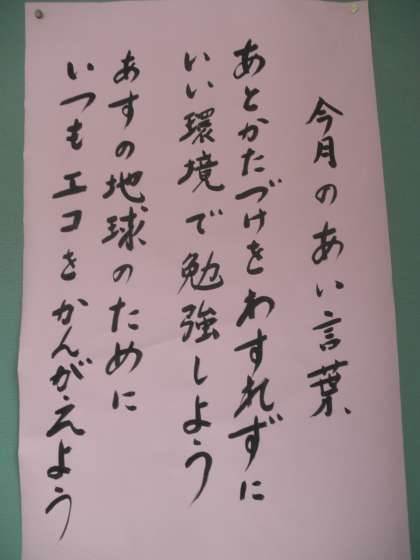 今月のあい言葉、
あとかたづけをわすれずに
いい環境で勉強しよう
あすの地球のために
いつもエコをかんがえよう